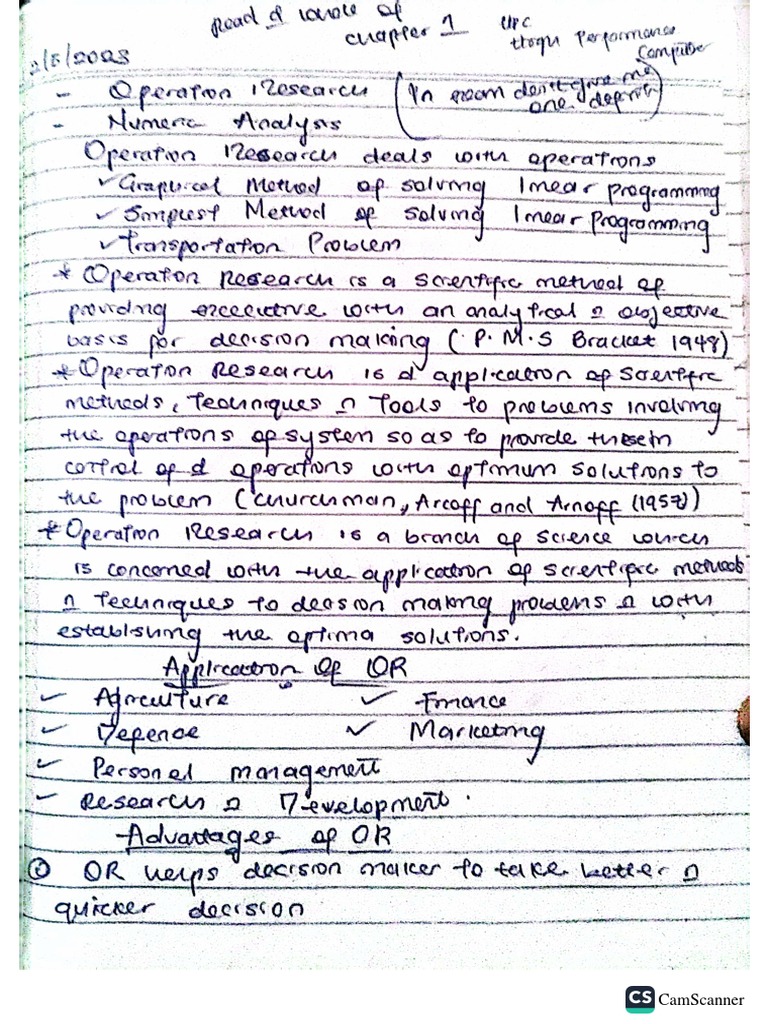 Read d whole of
chapter 1
HPC
High Performance
Computer
2/5/2023
- Operation Research (In exam don't give me
one definitn)
- Numeric Analysis
Operation Research deals with operations
✓ Graphical Method of solving linear programming
✓ Simplest Method of solving linear programming
✓ Transportation Problem
* Operation Research is a scientific method of
providing excecutive with an analytical n objective
basis for decision making (P.M.S Bracket 1948)
* Operation Research is d application of scientific
methods, Techniques n Tools to problems involving
the operations of system so as to provide these in
control of d operations with optimum solutions to
the problem (Churchman, Arcoff and Arnoff (1957))
* Operation Research is a branch of science which
is concerned with the application of scientific methods
n Techniques to decision making problems n with
establishing the optima solutions.
Application of OR
✓ Agriculture ✓ Finance
✓ Defence ✓ Marketing
✓ Personel management
✓ Research n Development.
Advantages of OR
OR helps decision maker to take better n
quicker decision
CS CamScanner